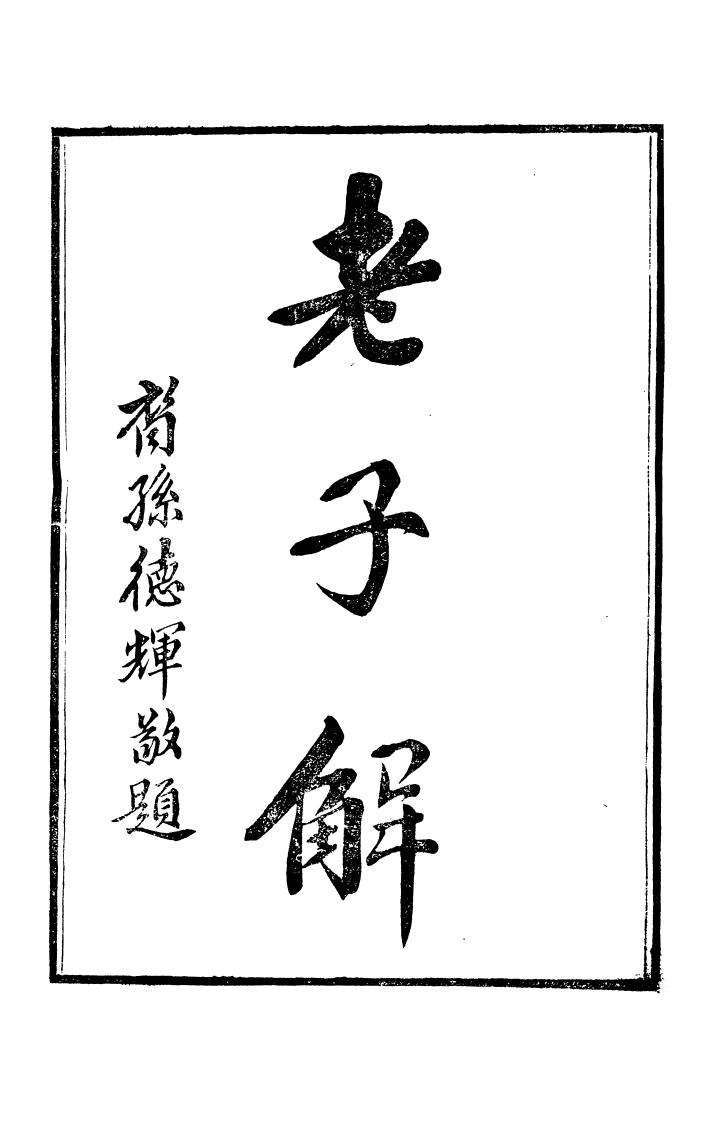 老子解
裔孫德輝敬題